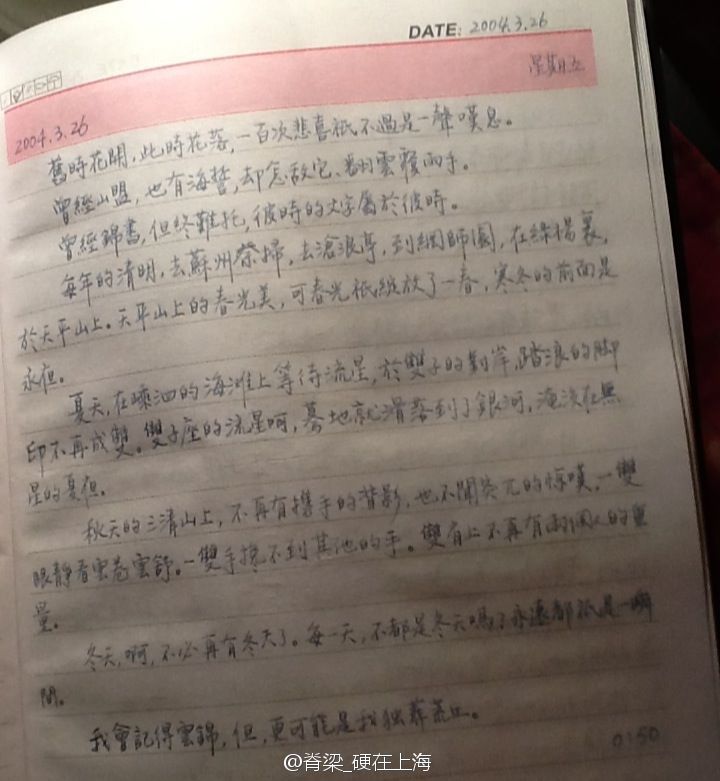 DATE: 2004.3.26
星期五
2004.3.26
舊時花開，此時花落，一百次悲喜祇不過是一聲嘆息。
曾經山盟，也有海誓，却怎敌它、翻雲覆雨手。
曾經錦書，但終難托，彼時的文字屬於彼時。
每年的清明，去蘇州祭掃，去滄浪亭，到網師園，在綠楊裏，
於天平山上。天平山上的春光美，可春光祇綻放了一春，寒冬的前面是
永夜。
夏天，在嵊泗的海滩上等待流星，於雙子的對岸，踏浪的脚
印不再成雙。雙子座的流星呵，驀地就滑落到了銀河，淹没在無
星的夏夜。
秋天的三清山上，不再有攜手的背影，也不聞的惊嘆，一雙
眼静看雲卷雲舒。一雙手挽不到其他的手。雙肩上不再有兩個人的重
量。
冬天，啊，不必再有冬天了。每一天，不都是冬天嗎？永遠都祇是一瞬
間。
我會記得雲錦，但，更可能是我獨葬
0150
@脊梁_硬在上海